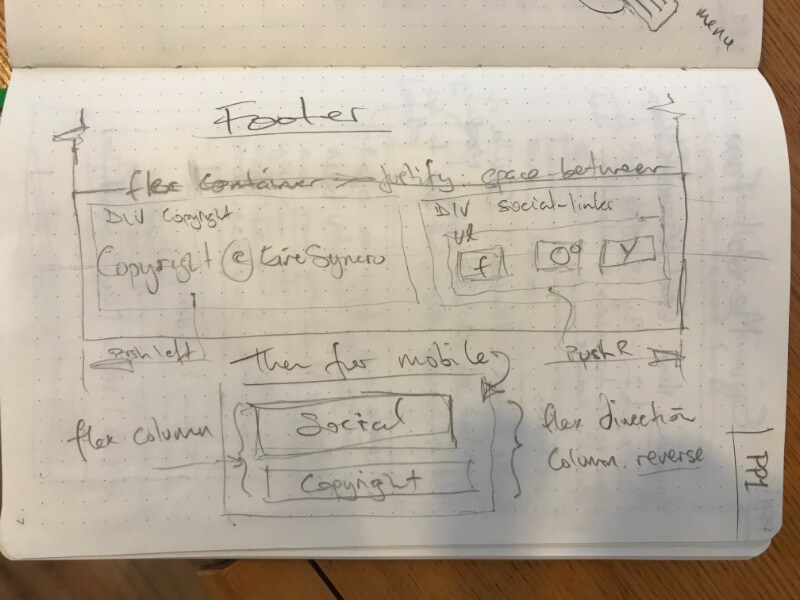 menu
Footer
flex container → justify: space-between
DIV Copyright
DIV social-links
UL
Copyright @
f
Y
Push left
Push R
then for mobile
flex column
Social
Copyright
flex direction
column. reverse
PP1